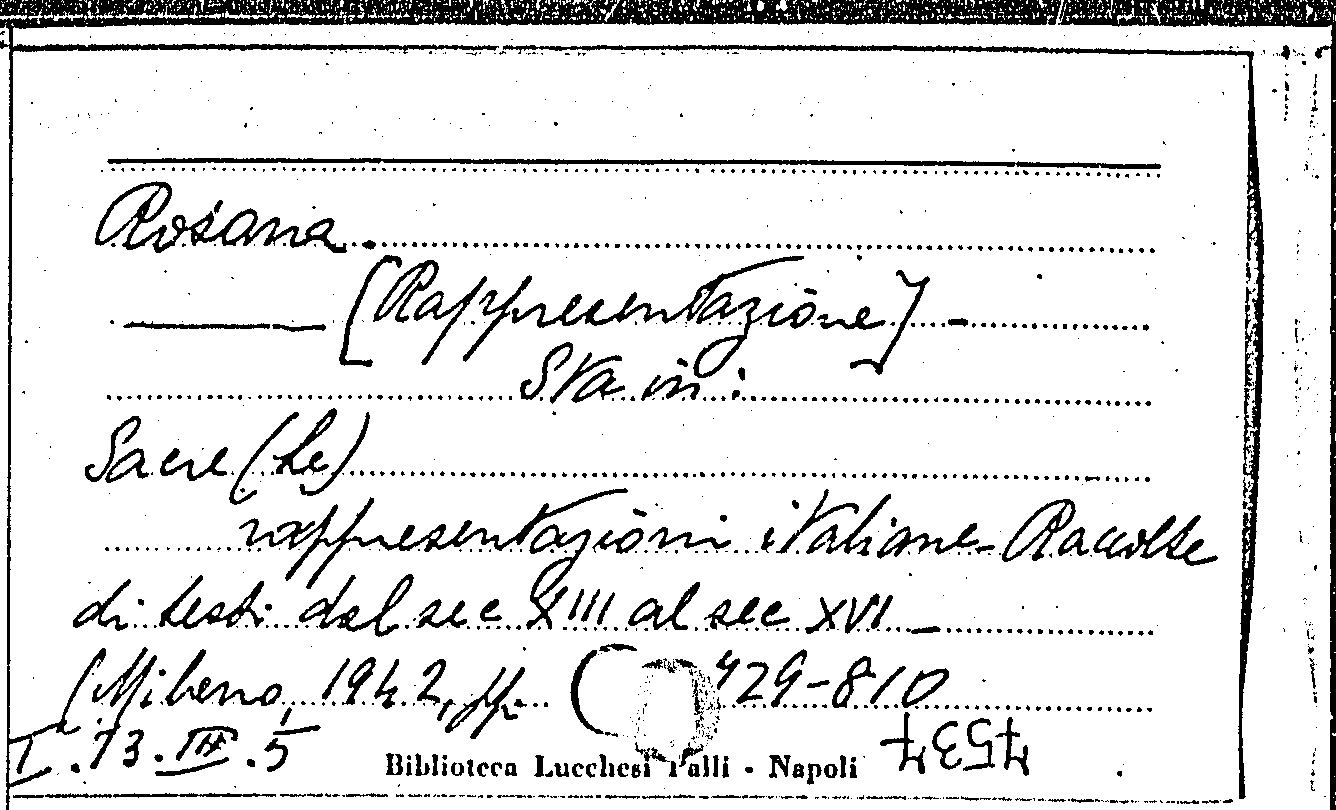 Rosana.
[Rappresentazione] -
Sta in:
Sacre (Le)
rappresentazioni italiane - Raccolte
di testi dal sec XIII al sec XVI -
(Milano, 1942, pp. 729-810
I.73.III.5
Biblioteca Lucchesi Palli - Napoli